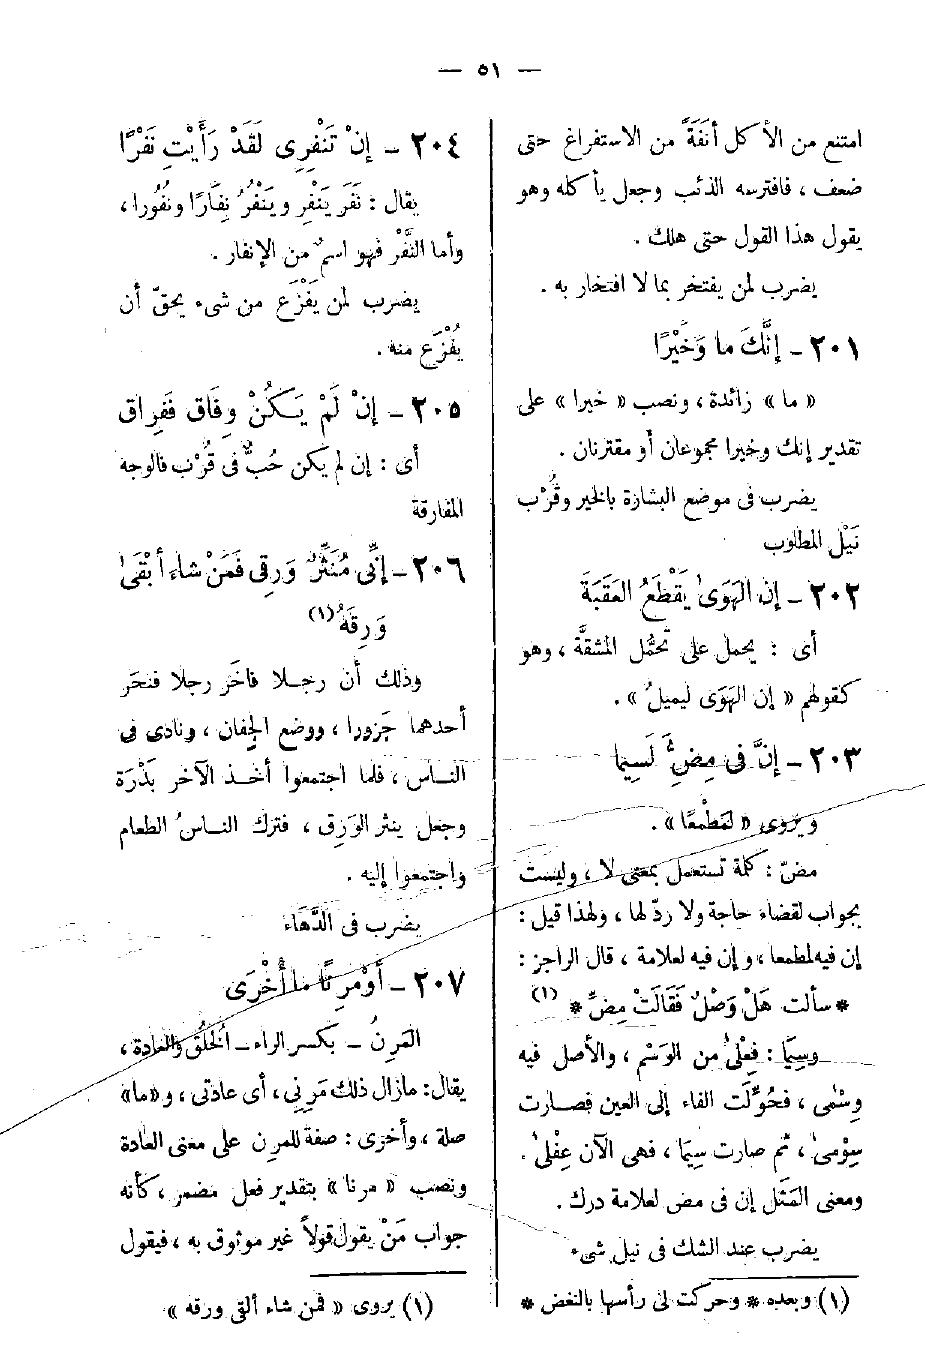 — ٥١ —
امتنع من الأكل أَنَفَةً من الاستفراغ حتى
ضعف ، فافترسه الذئب وجعل يأكله وهو
يقول هذا القول حتى هلك .
يضرب لمن يفتخر بما لا افتخار به .
٢٠١ – إِنَّكَ ما وَخَيْرًا
« ما » زائدة ، ونصب « خيرا » على
تقدير إنك وخيرا مجموعان أو مقترنان .
يضرب فى موضع البشارة بالخير وقُرْب
نَيْل المطلوب
٢٠٢ – إن الهَوَى يَقْطَعُ العَقَبَةَ
أى : يحمل على تحمُّل المشقَّة ، وهو
كقولهم « إن الهَوَى ليميلُ » .
٢٠٣ – إنَّ فى مِضِّ لَسِيما
ويروى « لمَطْمعًا » .
مضّ : كلمة تستعمل بمعنى لا ، وليست
بجواب لقضاء حاجة ولا ردّ لها ، ولهذا قيل :
إن فيه لمطمعا ، وإن فيه لعلامة ، قال الراجز :
* سألت هَلْ وَصْلٌ فَقَالَتْ مِضِّ * (١)
وسِيَما : فِعْلىٰ من الوَسْم ، والأصل فيه
وِسْمى ، فحُوِّلَت الفاء إلى العين فصارت
سِوْمىٰ ، ثم صارت سِيما ، فهى الآن عِفْلىٰ .
ومعنى المَثَل إن فى مض لعلامة درك .
يضرب عند الشك فى نيل شىء
(١) وبعده * وحركت لى رأسها بالنغض *
٢٠٤ – إنْ تَنْفِرِى لَقَدْ رَأَيْتِ نَفْرًا
يقال : نَفَرَ يَنْفِر ويَنْفُرُ نِفَارًا ونُفُورا ،
وأما النَّفْر فهو اسم من الإنفار .
يضرب لمن يَفْزَع من شىء يحقّ أن
يُفْزَع منه .
٢٠٥ – إنْ لَمْ يَكُنْ وِفَاق فَفِرَاق
أى : إن لم يكن حُبٌّ فى قُرْب فالوجه
المفارقة
٢٠٦ – إنِّى مُنَثِّرٌ وَرِقى فَمَنْ شاء أبْقَىٰ
وَرِقَهُ (١)
وذلك أن رجلا فاخَر رجلا فنحَر
أحدهما جَزورا ، ووضع الجِفان ، ونادى فى
الناس ، فلما اجتمعوا أخذ الآخر بَدْرَة
وجعل ينثر الوَرِق ، فترك الناسُ الطعام
واجتمعوا إليه .
يضرب فى الدَّهَاء
٢٠٧ – أَوْمَرِنًا ما أُخْرَى
المَرِنُ – بكسر الراء – الخلُق والعادة ،
يقال : مازال ذلك مَرِنِى ، أى عادتى ، و « ما »
صلة ، وأخرى : صفة للمرِن على معنى العادة
ونصب « مرنا » بتقدير فعل مضمر ، كأنه
جواب مَنْ يقول قولاً غير موثوق به ، فيقول
(١) يروى « فمن شاء ألقى ورقه »